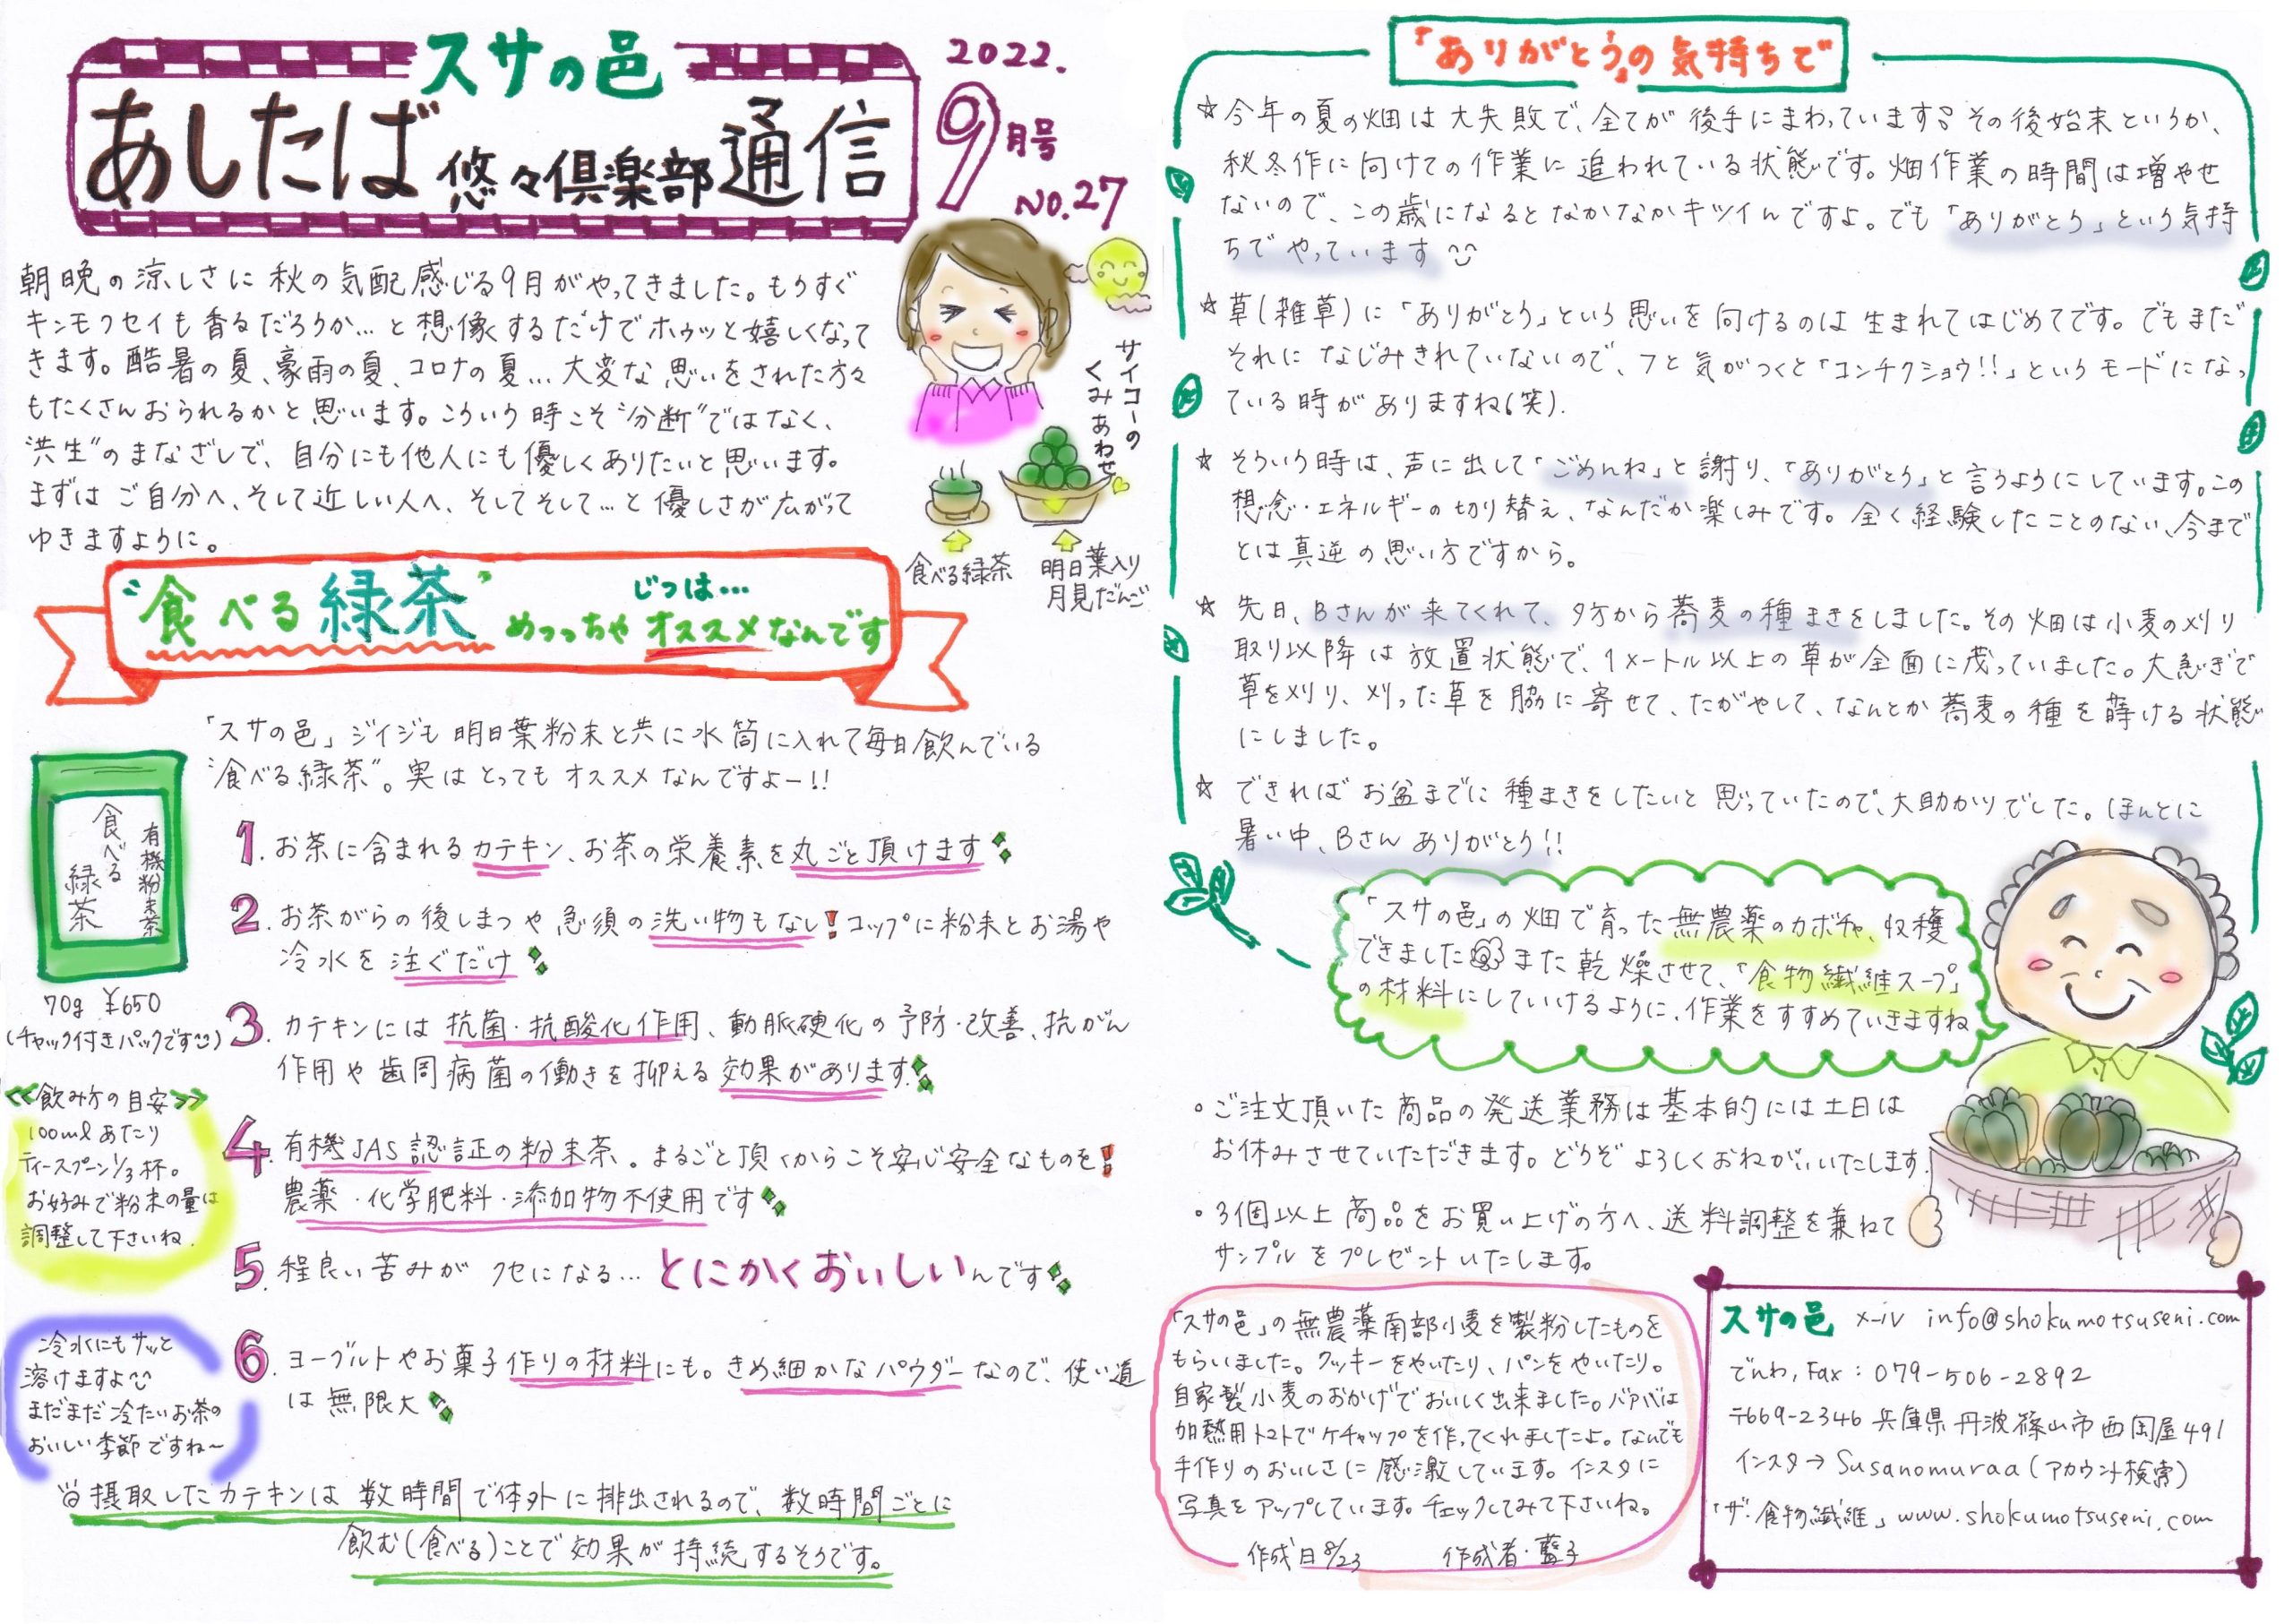 スサの邑
あしたば 悠々倶楽部 通信
2022.
9月号
No.27
朝晩の涼しさに秋の気配感じる9月がやってきました。もうすぐ
キンモクセイも香るだろうか…と想像するだけでホゥッと嬉しくなって
きます。酷暑の夏、豪雨の夏、コロナの夏…大変な思いをされた方々
もたくさんおられるかと思います。こういう時こそ"分断"ではなく、
"共生"のまなざしで、自分にも他人にも優しくありたいと思います。
まずはご自分へ、そして近しい人へ、そしてそして…と優しさが広がって
ゆきますように。
サイコーの
くみあわせ
食べる緑茶
明日葉入り
月見だんご
"食べる緑茶" じつは…
めっっちゃオススメなんです
「スサの邑」ジイジも明日葉粉末と共に水筒に入れて毎日飲んでいる
"食べる緑茶"。実はとってもオススメなんですよー!!
有機粉末茶
食べる
緑茶
70g ¥650
(チャック付きパックです)
≪飲み方の目安≫
100mlあたり
ティースプーン1/3杯。
お好みで粉末の量は
調整して下さいね。
冷水にもサッと
溶けますよ
まだまだ冷たいお茶の
おいしい季節ですね~
1. お茶に含まれるカテキン、お茶の栄養素を丸ごと頂けます
2. お茶がらの後しまつや急須の洗い物もなし!コップに粉末とお湯や
冷水を注ぐだけ
3. カテキンには抗菌・抗酸化作用、動脈硬化の予防・改善、抗がん
作用や歯周病菌の働きを抑える効果があります。
4. 有機JAS認証の粉末茶。まるごと頂くからこそ安心安全なものを!
農薬・化学肥料・添加物不使用です
5. 程良い苦みがクセになる…とにかくおいしいんです
6. ヨーグルトやお菓子作りの材料にも。きめ細かなパウダーなので、使い道
は無限大
摂取したカテキンは数時間で体外に排出されるので、数時間ごとに
飲む(食べる)ことで効果が持続するそうです。
「ありがとう」の気持ちで
☆ 今年の夏の畑は大失敗で、全てが後手にまわっています。その後始末というか、
秋冬作に向けての作業に追われている状態です。畑作業の時間は増やせ
ないので、この歳になるとなかなかキツイんですよ。でも「ありがとう」という気持
ちでやっています
☆ 草(雑草)に「ありがとう」という思いを向けるのは生まれてはじめてです。でもまだ
それになじみきれていないので、フと気がつくと「コンチクショウ!!」というモードになっ
ている時がありますね(笑).
☆ そういう時は、声に出して「ごめんね」と謝り、「ありがとう」と言うようにしています。この
想念・エネルギーの切り替え、なんだか楽しみです。全く経験したことのない、今まで
とは真逆の思い方ですから。
☆ 先日、Bさんが来てくれて、夕方から蕎麦の種まきをしました。その畑は小麦の刈り
取り以降は放置状態で、1メートル以上の草が全面に茂っていました。大急ぎで
草を刈り、刈った草を脇に寄せて、たがやして、なんとか蕎麦の種を蒔ける状態
にしました。
☆ できればお盆までに種まきをしたいと思っていたので、大助かりでした。ほんとに
暑い中、Bさんありがとう!!
「スサの邑」の畑で育った無農薬のカボチャ、収穫
できました また乾燥させて、「食物繊維スープ」
の材料にしていけるように、作業をすすめていきますね
・ご注文頂いた商品の発送業務は基本的には土日は
お休みさせていただきます。どうぞよろしくおねがいいたします。
・3個以上商品をお買い上げの方へ、送料調整を兼ねて
サンプルをプレゼントいたします。
「スサの邑」の無農薬南部小麦を製粉したものを
もらいました。クッキーをやいたり、パンをやいたり。
自家製小麦のおかげでおいしく出来ました。バァバは
加熱用トマトでケチャップを作ってくれましたよ。なんでも
手作りのおいしさに感激しています。インスタに
写真をアップしています。チェックしてみて下さいね。
作成日8/23 作成者・藍子
スサの邑 メール info@shokumotsuseni.com
でんわ,Fax:079-506-2892
〒669-2346 兵庫県丹波篠山市西岡屋491
インスタ→Susanomuraa(アカウント検索)
「ザ・食物繊維」www.shokumotsuseni.com